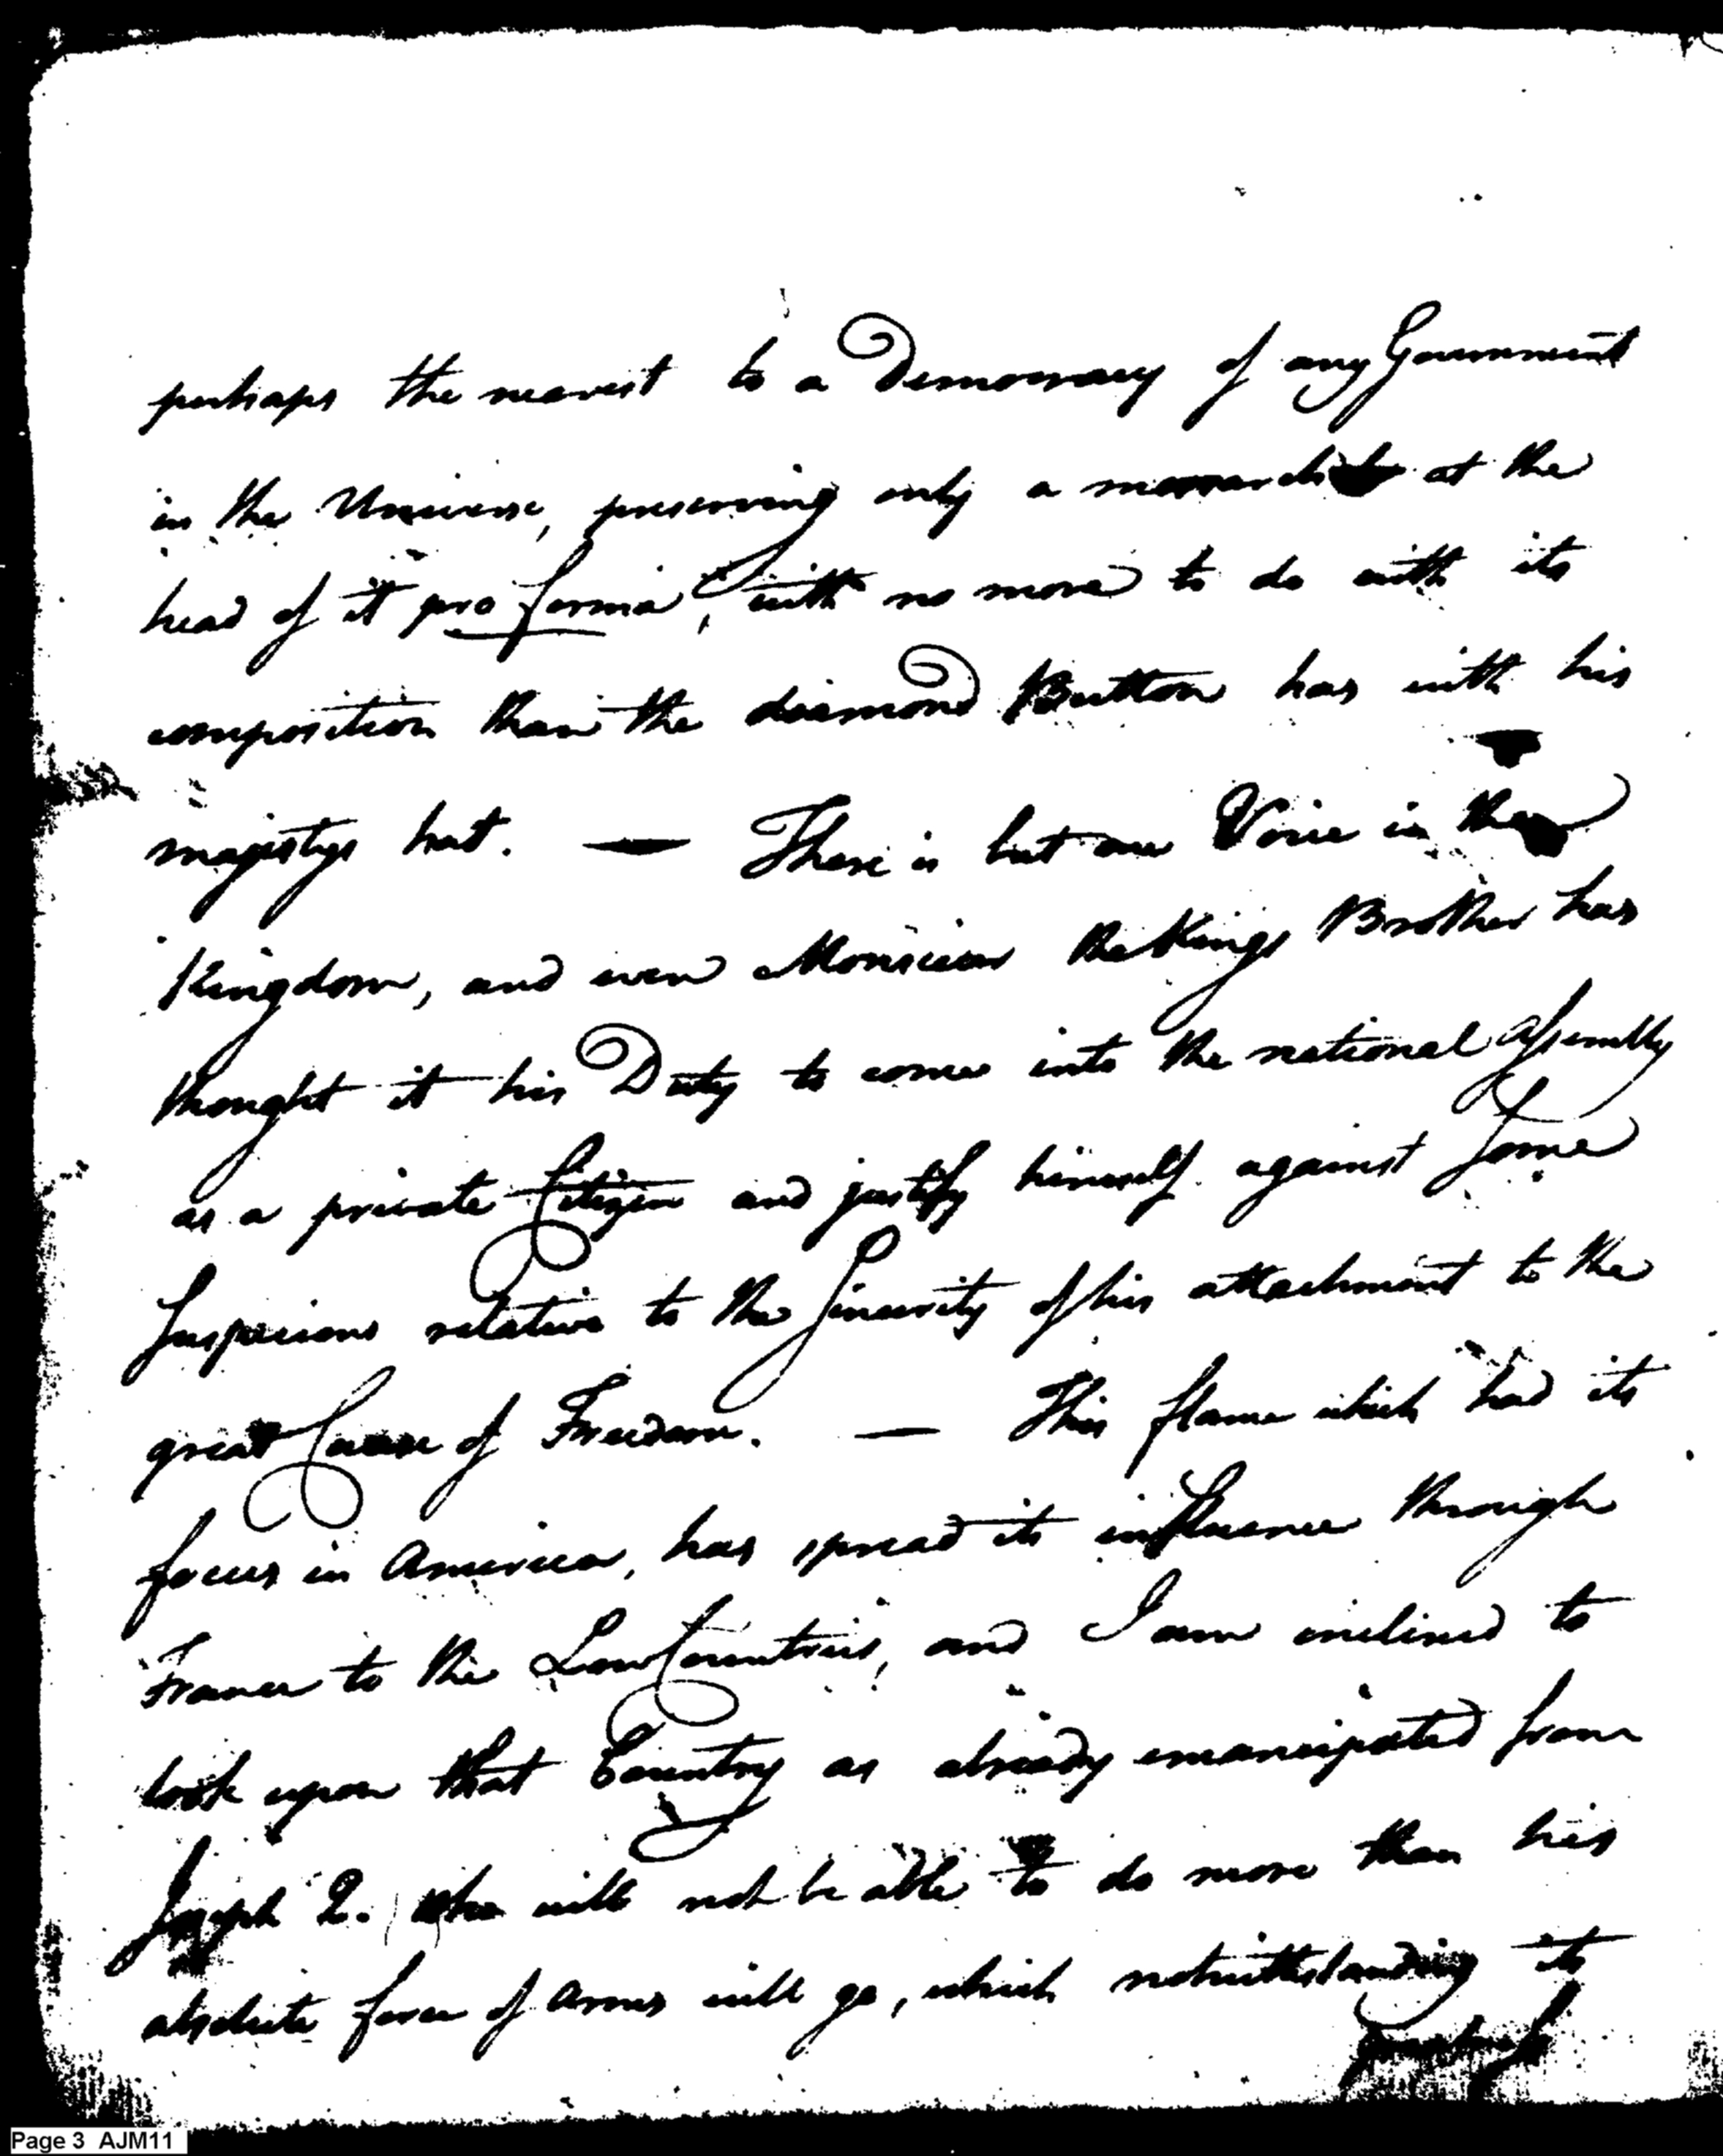 perhaps the nearest to a Democracy of any Government
in the Universe, preserving only a monarch at the
head of it pro forma, with no more to do with its
composition than the diamond Button has with his
majestys hat. — There is but one Voice in the
Kingdom, and even Monsieur the Kings Brother has
thought it his Duty to come into the national assembly
as a private Citizen and justify himself against Some
Suspicions relative to the Sincerity of his attachment to the
great Cause of Freedom. — This flame which had its
focus in America, has spread its influence through
France to the Low Countries, and I am inclined to
look upon that Country as already emancipated from
Joseph 2. who will not be able to do more than his
absolute force of Arms will go, which notwithstanding its
Page 3 AJM11